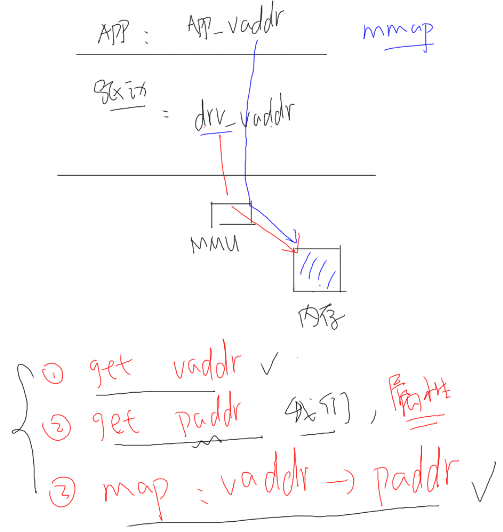 APP: APP_vaddr
mmap
驱动: drv_vaddr
MMU
内存
① get vaddr ✓
② get paddr 驱动, 属性
③ map: vaddr → paddr ✓